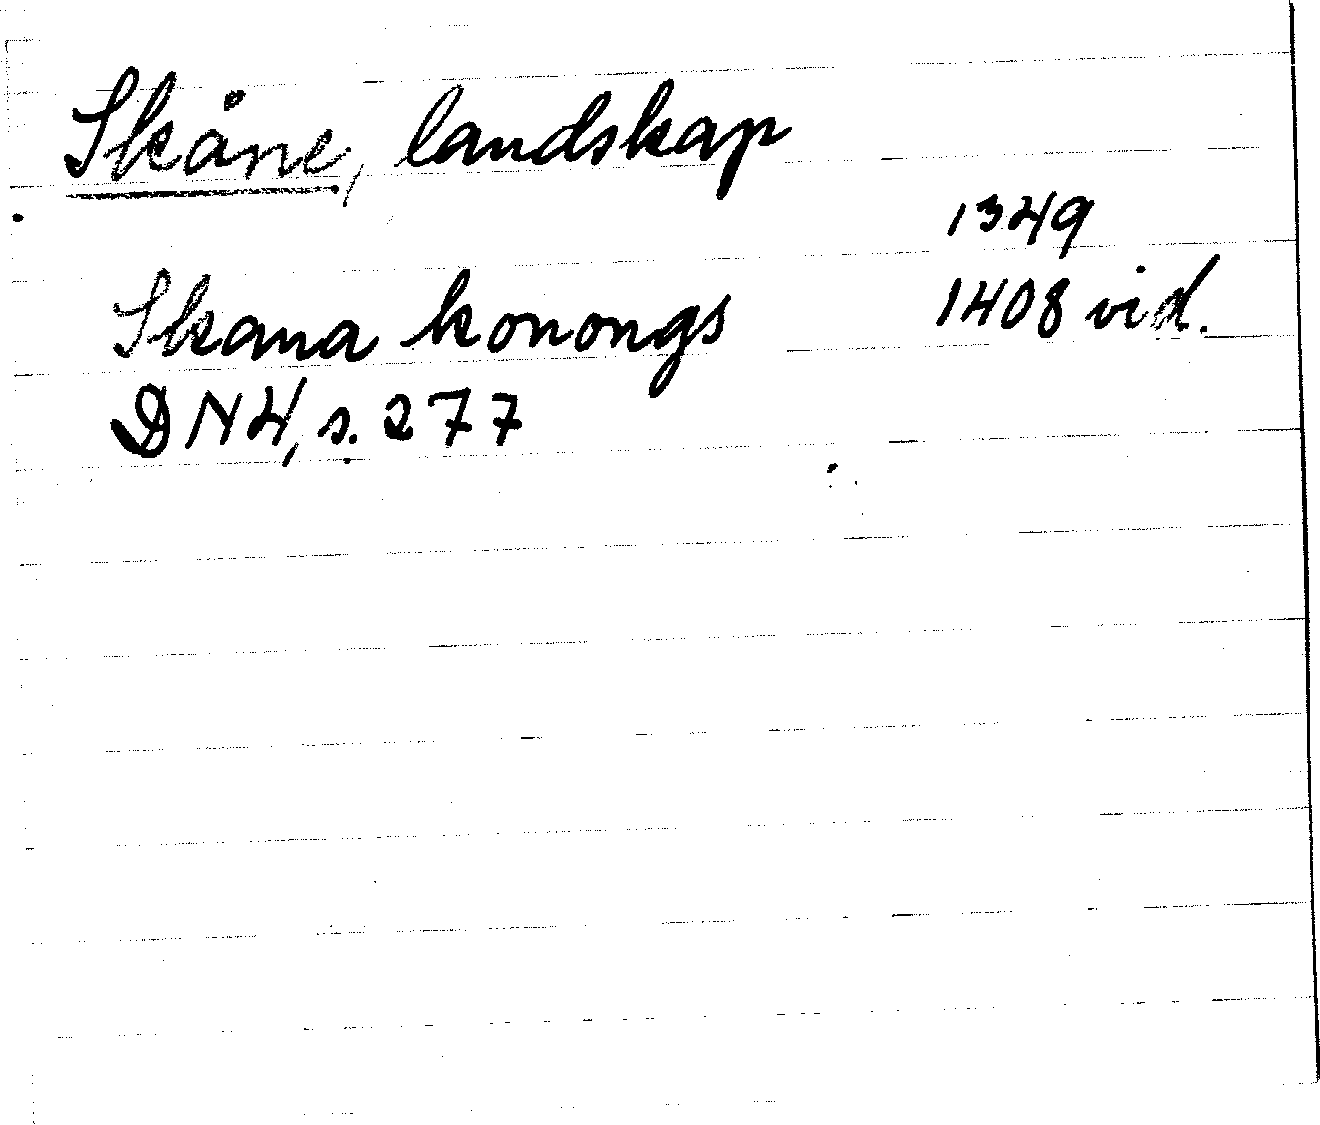 Skåne, landskap
1349
Skana konongs 1408 vid.
DN 4, s. 277